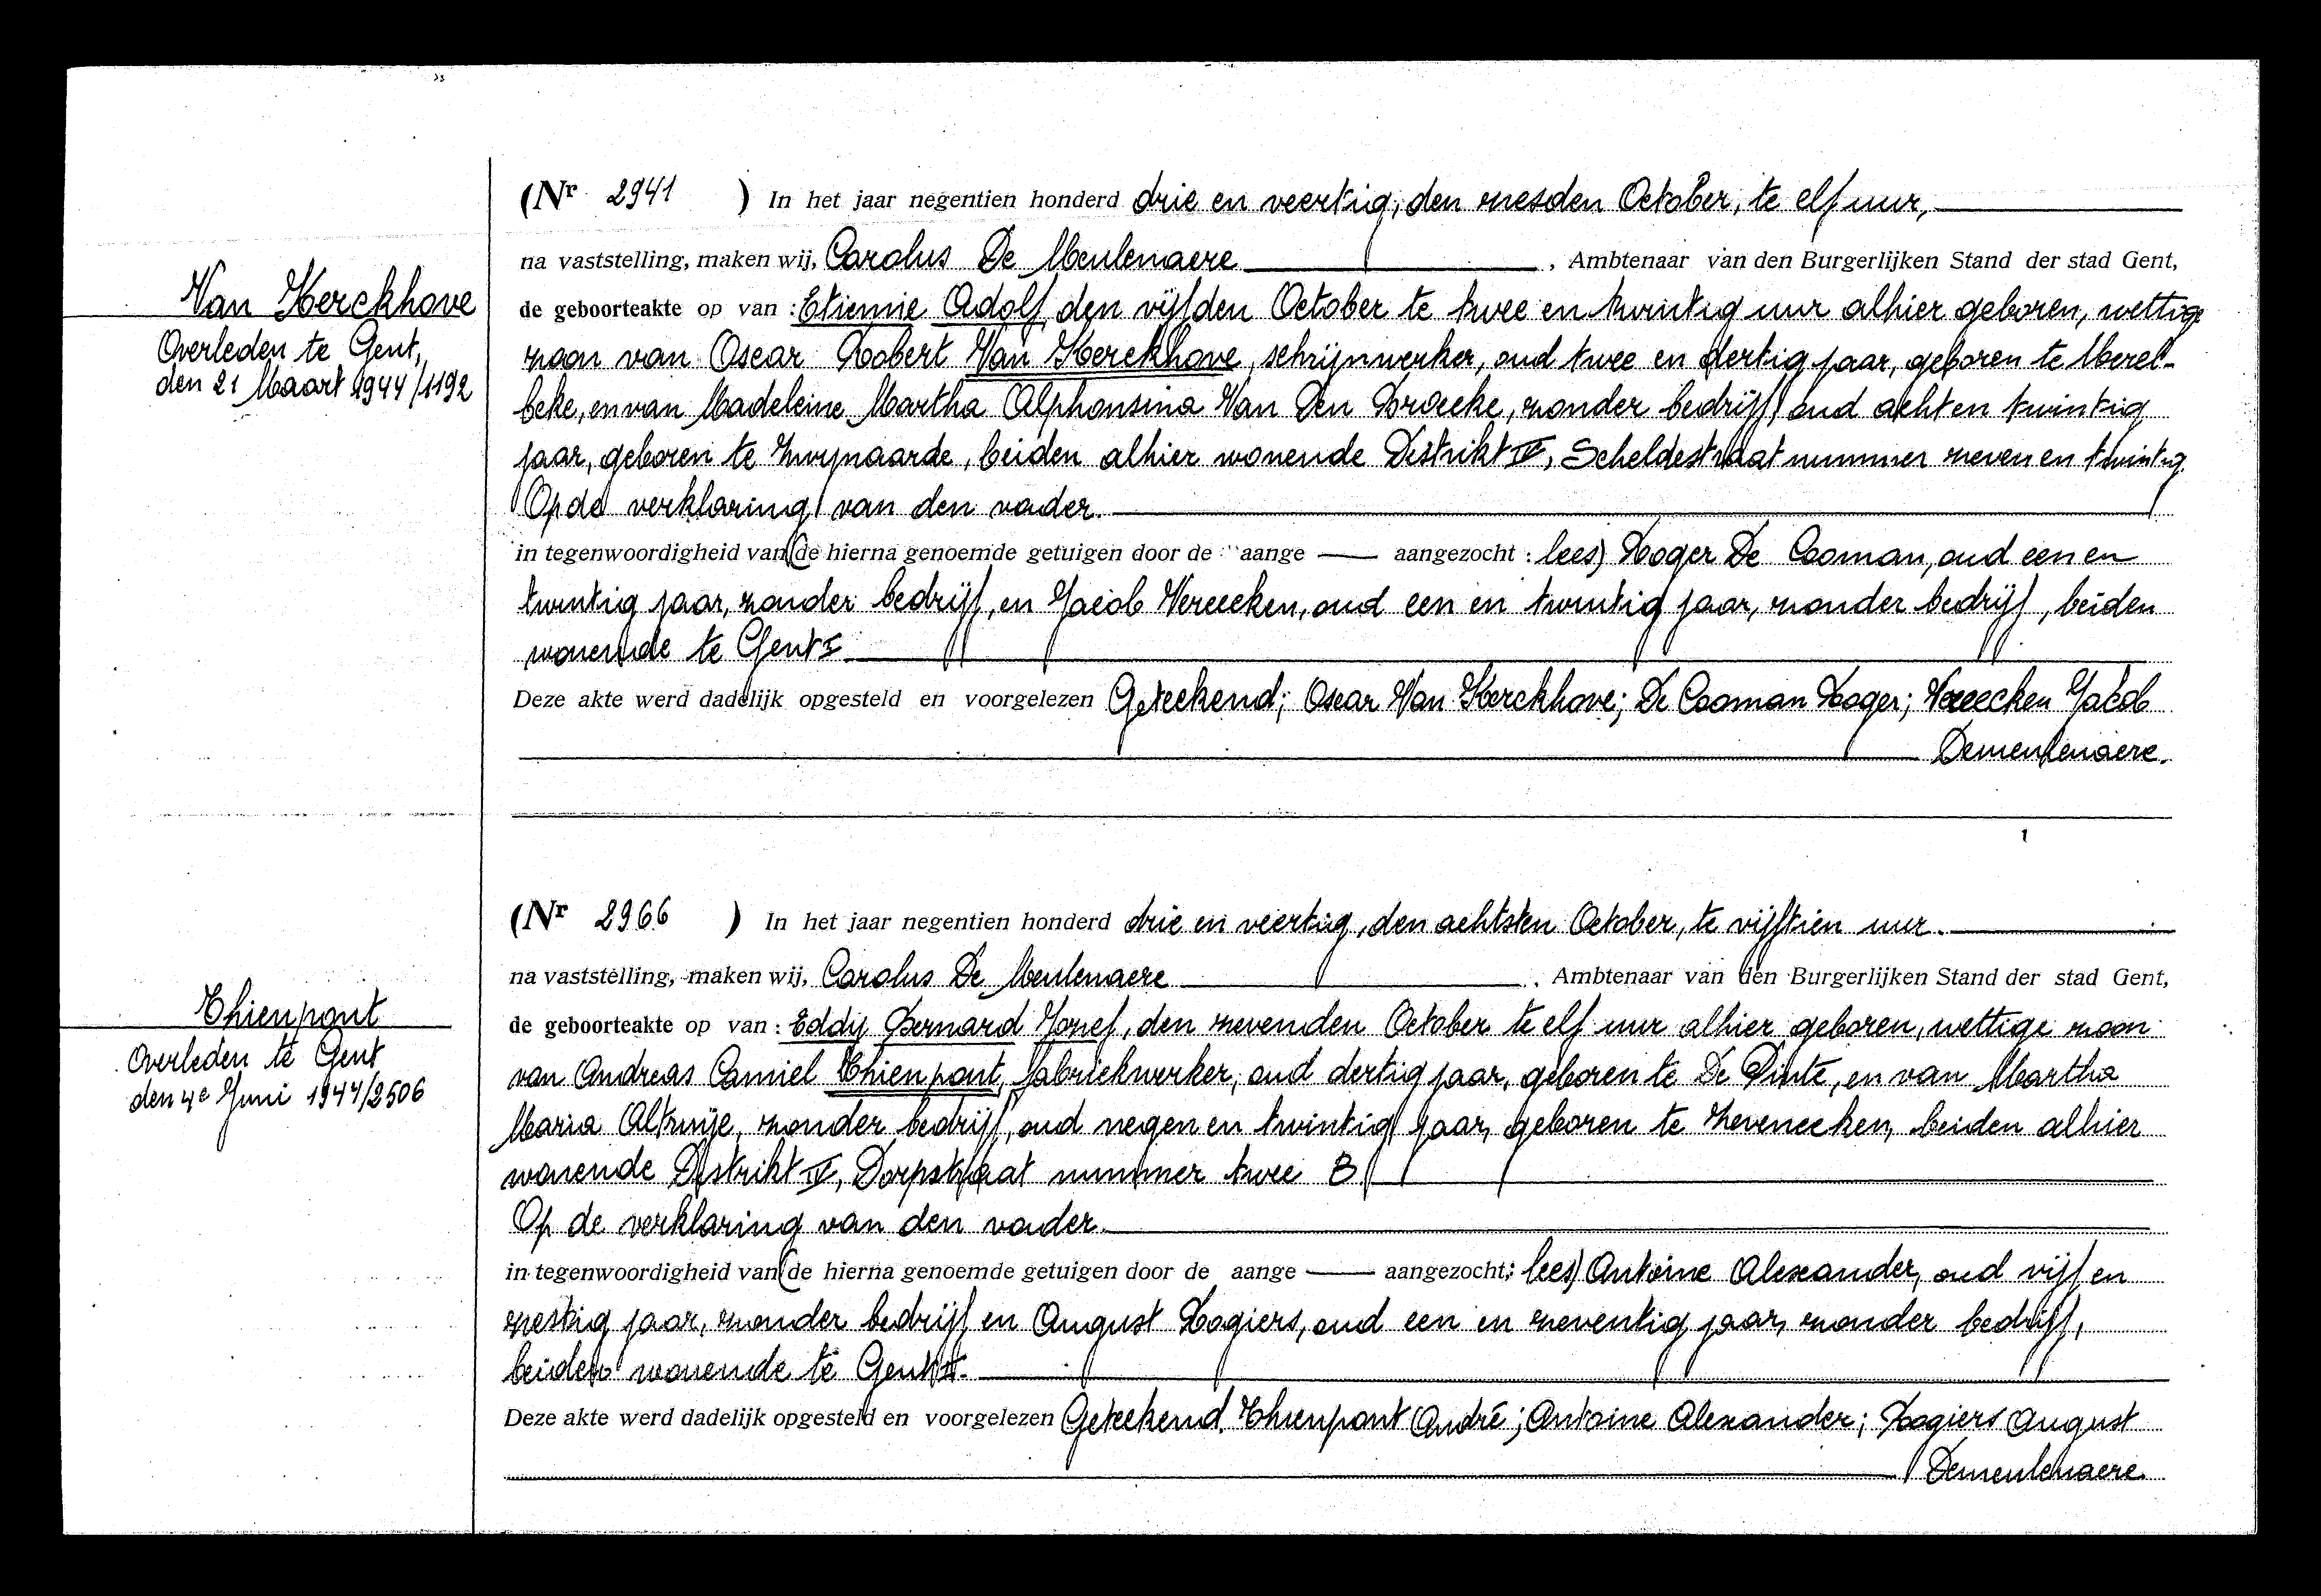 (Nr 2941 ) In het jaar negentien honderd drie en veertig, den zesden October, te elf uur,
na vaststelling, maken wij, Carolus De Meulenaere , Ambtenaar van den Burgerlijken Stand der stad Gent,
Van Kerckhove
de geboorteakte op van : Etienne Adolf, den vijfden October te twee en twintig uur alhier geboren, wettige
Overleden te Gent,
den 21 Maart 1944/1192
zoon van Oscar Robert Van Kerckhove, schrijnwerker, oud twee en dertig jaar, geboren te Merel-
beke, en van Madeleine Martha Alphonsina Van Den Broecke, zonder bedrijf, oud acht en twintig
jaar, geboren te Zwijnaarde, beiden alhier wonende Distrikt IV, Scheldestraat nummer zeven en twintig.
Op de verklaring van den vader.
in tegenwoordigheid van (de hierna genoemde getuigen door de aange — aangezocht : lees) Roger De Cooman, oud een en
twintig jaar, zonder bedrijf, en Jacob Vereecken, oud een en twintig jaar, zonder bedrijf, beiden
wonende te Gent I
Deze akte werd dadelijk opgesteld en voorgelezen Geteekend; Oscar Van Kerckhove; De Cooman Roger; Vereecken Jacob
Demeulenaere.
(Nr 2966 ) In het jaar negentien honderd drie en veertig, den achtsten October, te vijftien uur.
na vaststelling, maken wij, Carolus De Meulenaere , Ambtenaar van den Burgerlijken Stand der stad Gent,
Thienpont
de geboorteakte op van : Eddy Bernard Jozef, den zevenden October te elf uur alhier geboren, wettige zoon
Overleden te Gent
den 4e Juni 1944/2506
van Andreas Camiel Thienpont, fabriekwerker, oud dertig jaar, geboren te De Pinte, en van Martha
Maria Altruije, zonder bedrijf, oud negen en twintig jaar, geboren te Zeveneeken, beiden alhier
wonende Distrikt IV, Dorpstraat nummer twee B
Op de verklaring van den vader.
in tegenwoordigheid van (de hierna genoemde getuigen door de aange — aangezocht : lees) Antoine Alexander, oud vijf en
zestig jaar, zonder bedrijf en August Rogiers, oud een en zeventig jaar, zonder bedrijf,
beiden wonende te Gent
Deze akte werd dadelijk opgesteld en voorgelezen Geteekend. Thienpont André; Antoine Alexander; Rogiers August
Demeulenaere.